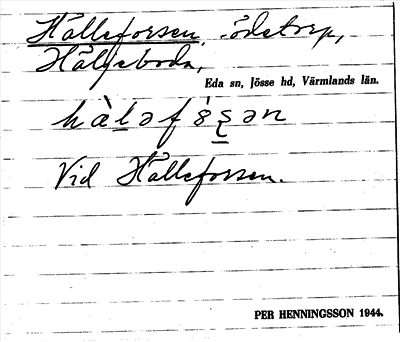 Hälleforsen, ödetorp,
Hälleboda,
Eda sn, Jösse hd, Värmlands län.
hàləfóʂən
Vid Hälleforsen.
PER HENNINGSSON 1944.